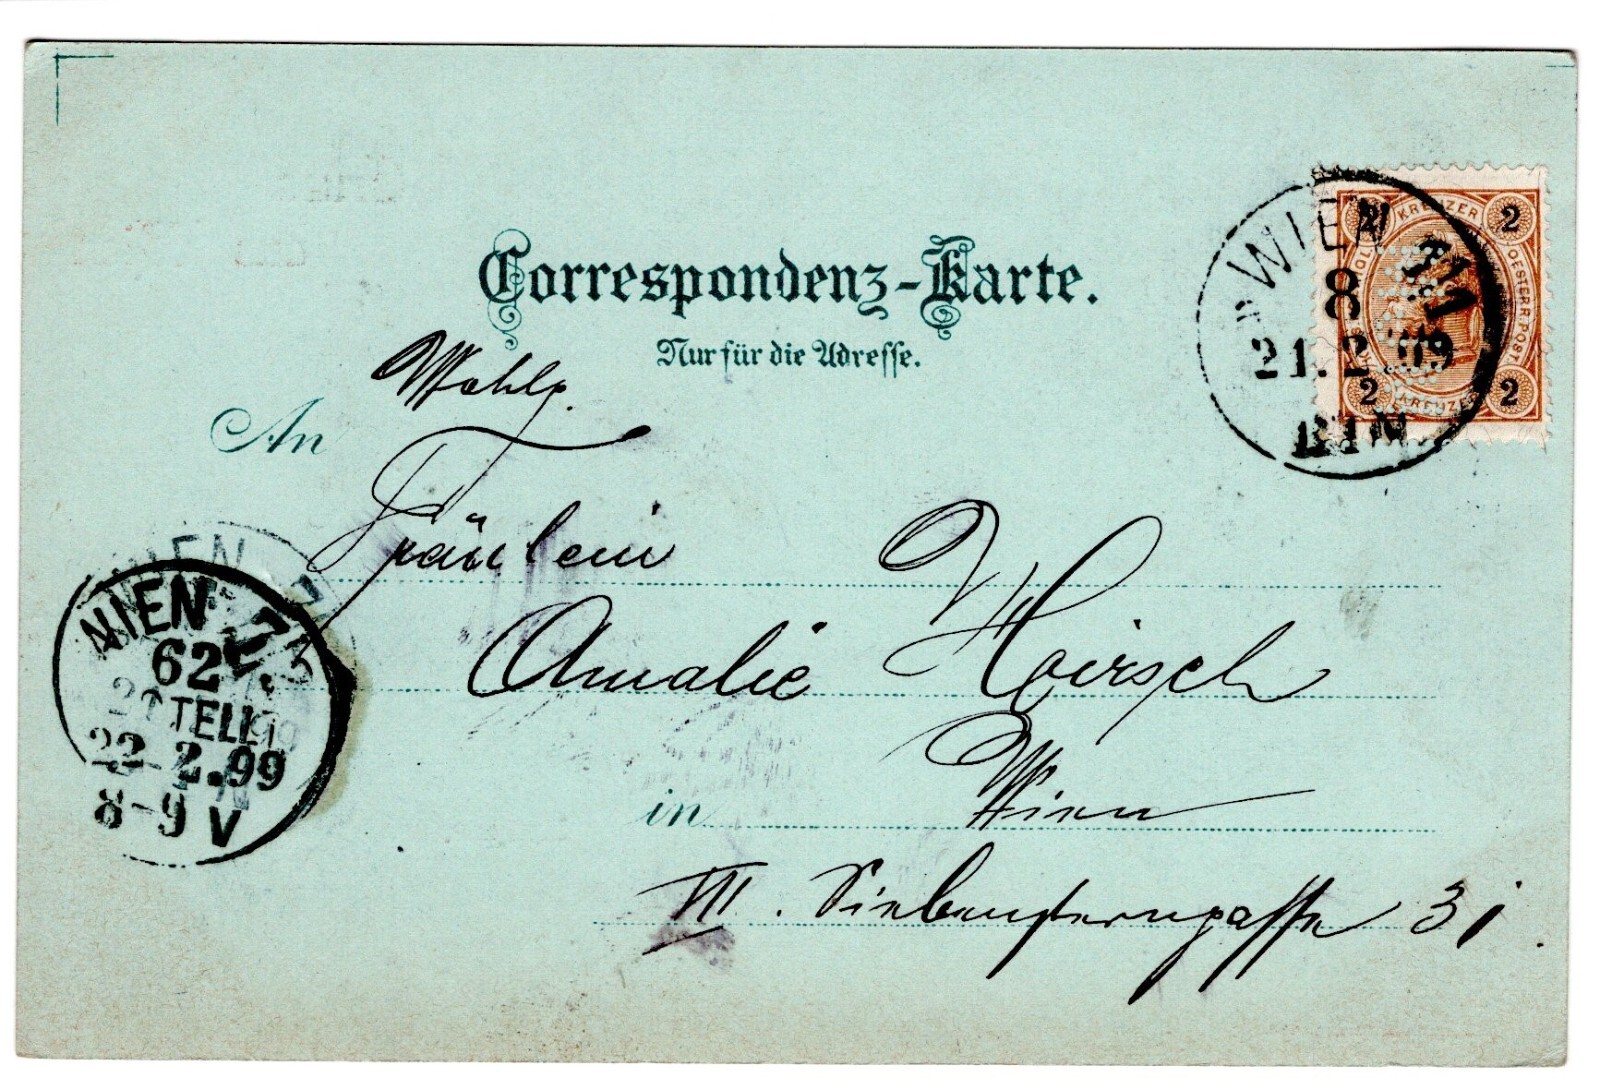 Correspondenz-Karte.
Nur für die Adresse.
Wohlg.
An
Fräulein
Amalie Hoirsch
in Wien
VII. Siebensterngasse 31.
WIEN
8
21.2.99
2 KREUZER 2
OESTERR.POST
2 KREUZER 2
WIEN
62
BESTELLT
22.2.99
8-9 V